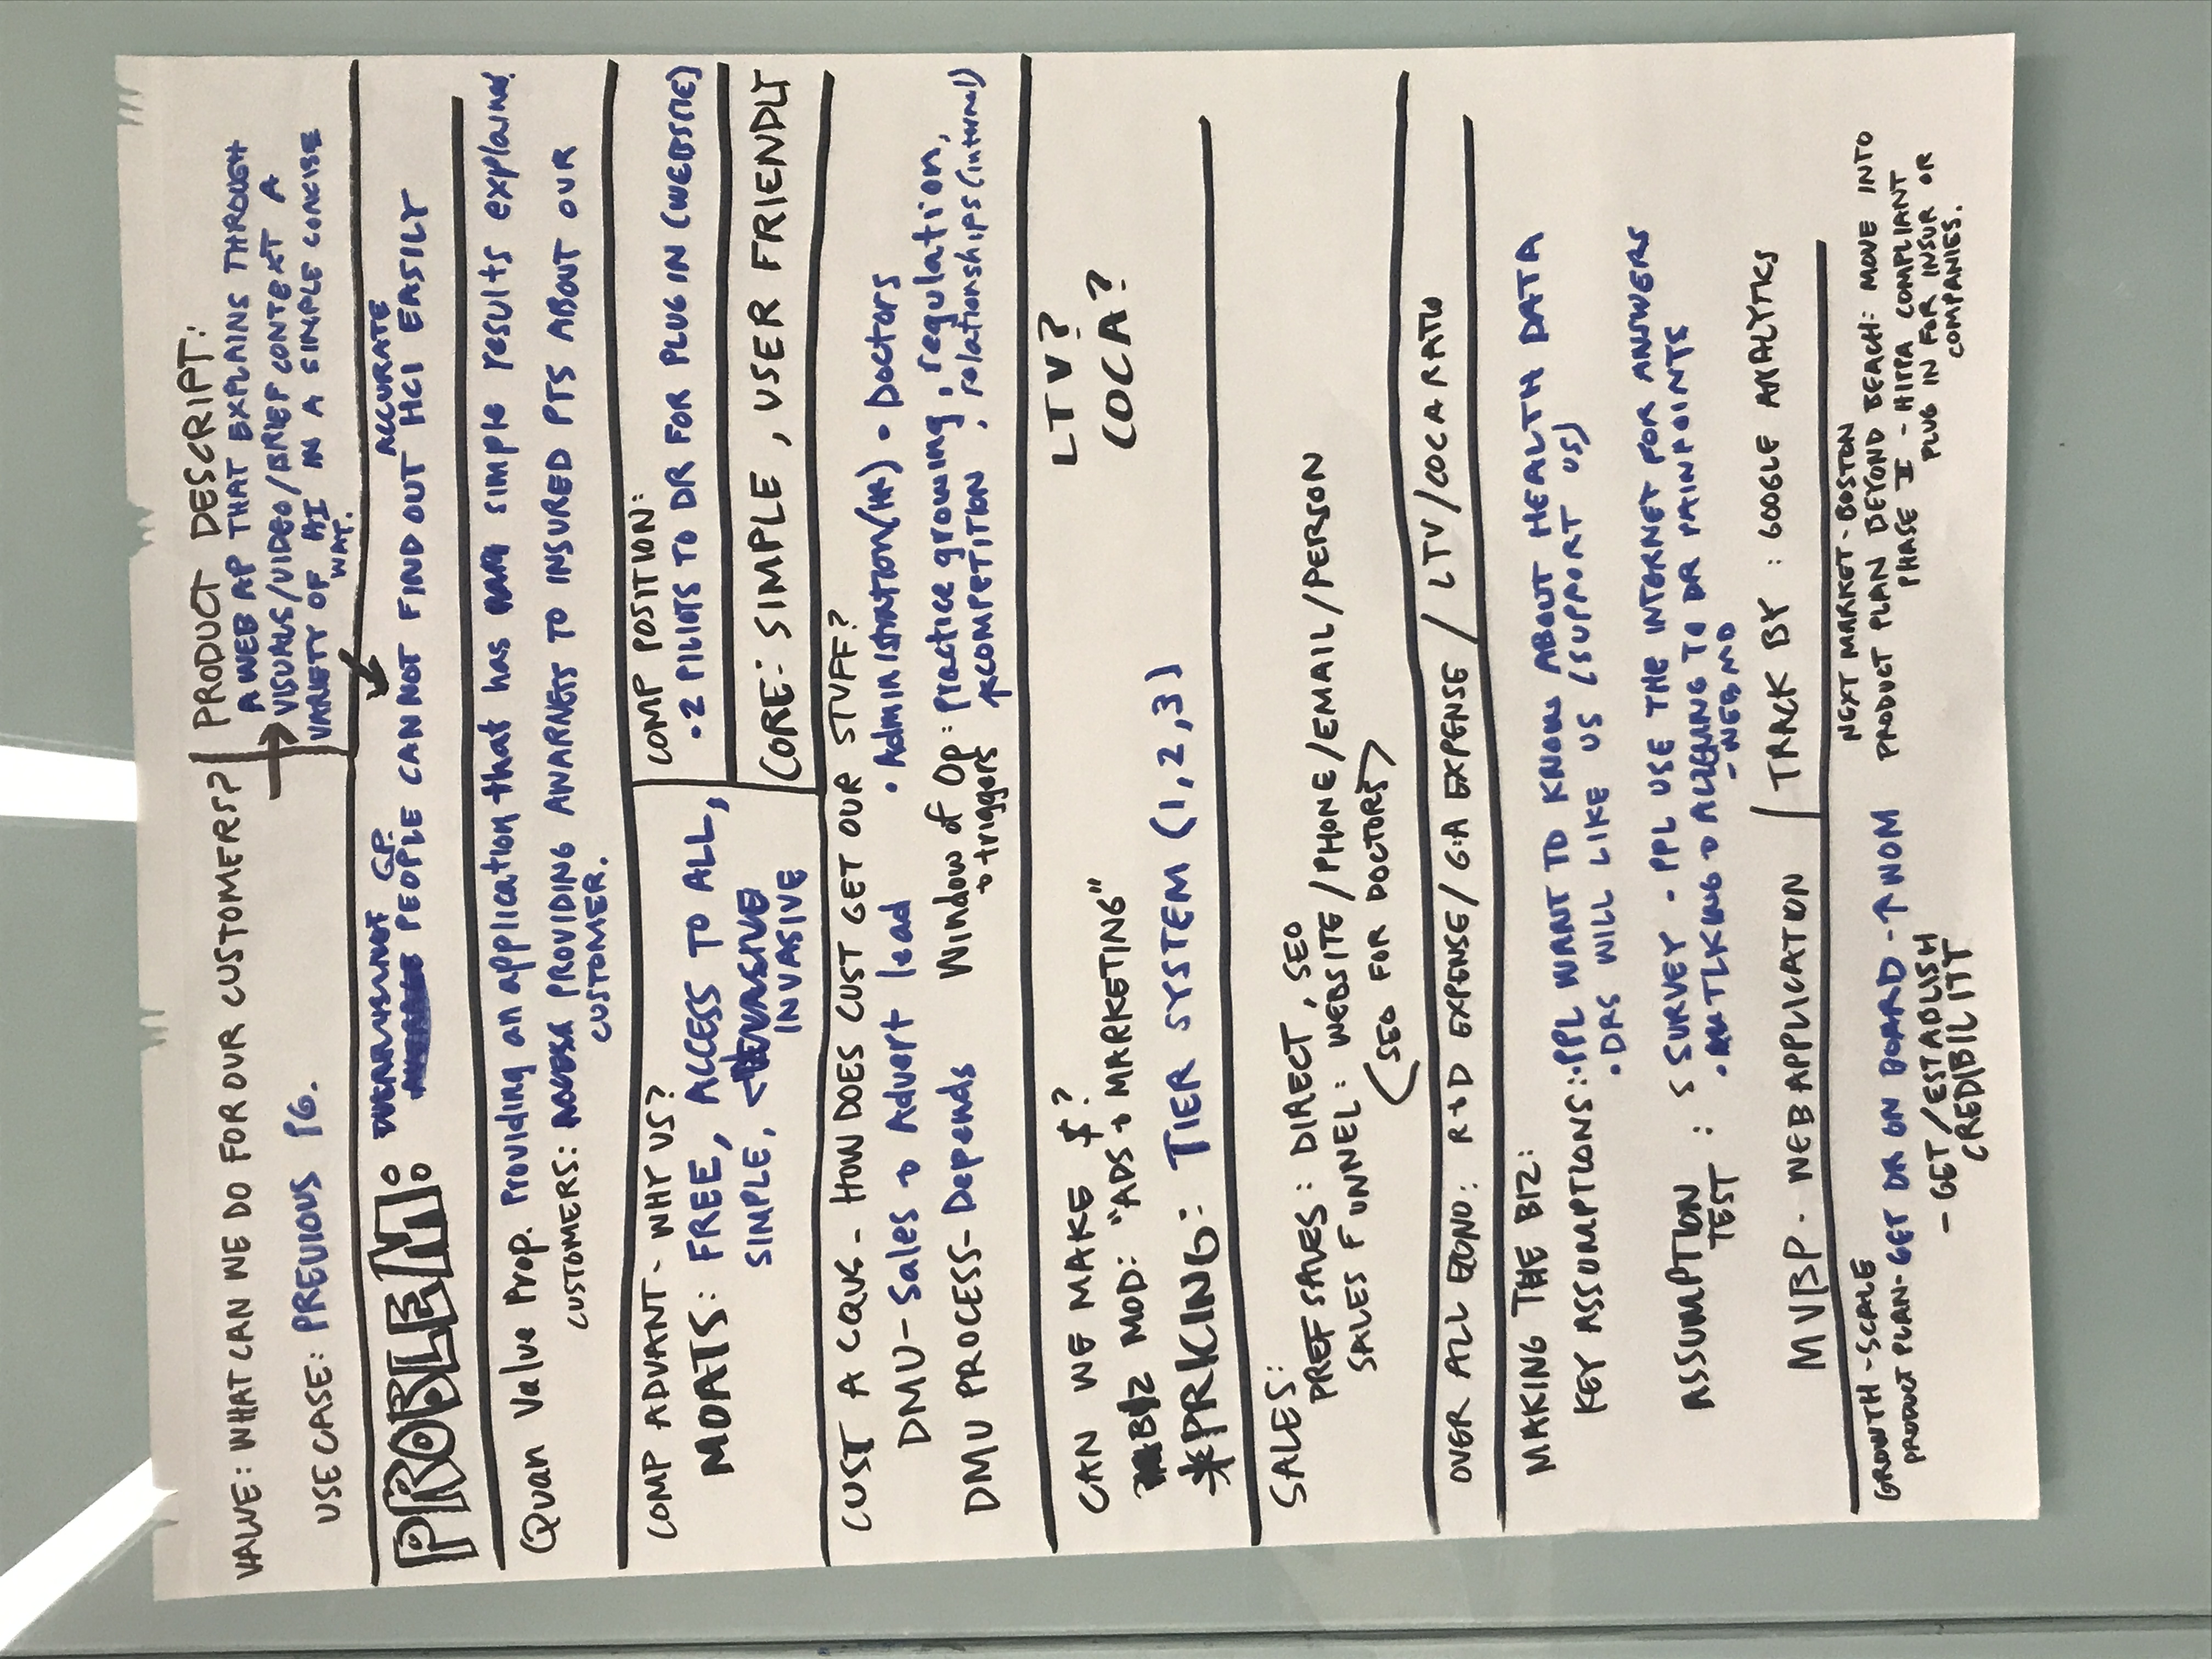 VALUE: WHAT CAN WE DO FOR OUR CUSTOMERS?
USE CASE: PREVIOUS PG.
PRODUCT DESCRIPT:
A WEB AP THAT EXPLAINS THROUGH
VISUALS/VIDEO/BRIEF CONTEXT A
VARIETY OF HI IN A SIMPLE CONCISE
WAY.
PROBLEM:
GP. ACCURATE
PEOPLE CAN NOT FIND OUT HCI EASILY
Quan Value Prop. Providing an application that has simple results explained.
CUSTOMERS: PROVIDING AWARNESS TO INSURED PTS ABOUT OUR
CUSTOMER.
COMP ADVANT - WHY US?
MOATS: FREE, ACCESS TO ALL,
SIMPLE, <
INVASIVE
COMP POSITION:
• 2 PILIOTS TO DR FOR PLUG IN (WEBSITE)
CORE: SIMPLE, USER FRIENDLY
CUST ACQUS - HOW DOES CUST GET OUR STUFF?
DMU - Sales + Advert lead • Administration (HR) • Doctors
DMU PROCESS - Depends
Window of Op: practice growing, regulation,
+ triggers ↑COMPETITION, relationships (internal)
CAN WE MAKE $?
BIZ MOD: "ADS + MARKETING"
*PRICING: TIER SYSTEM (1,2,3)
LTV?
COCA?
SALES:
PREF SALES: DIRECT, SEO
SALES FUNNEL: WEBSITE/PHONE/EMAIL/PERSON
(SEO FOR DOCTORS)
OVER ALL ECONO: R+D EXPENSE/ G:A EXPENSE / LTV/COCA RATIO
MAKING THE BIZ:
KEY ASSUMPTIONS: • PPL WANT TO KNOW ABOUT HEALTH DATA
• DRS WILL LIKE US (SUPPORT US)
ASSUMPTION : SURVEY - PPL USE THE INTERNET FOR ANSWERS
TEST • TLKING + ALIGNING TO DR PAINPOINTS
- WEB MD
MVBP - WEB APPLICATION
TRACK BY: GOOGLE ANALYTICS
GROWTH - SCALE
PRODUCT PLAN - GET DR ON BOARD - ↑ WOM
- GET/ESTABLISH
CREDIBILITY
NEXT MARKET - BOSTON
PRODUCT PLAN BEYOND BEACH: MOVE INTO
PHASE II - HIPPA COMPLIANT
PLUG IN FOR INSUR OR
COMPANIES.